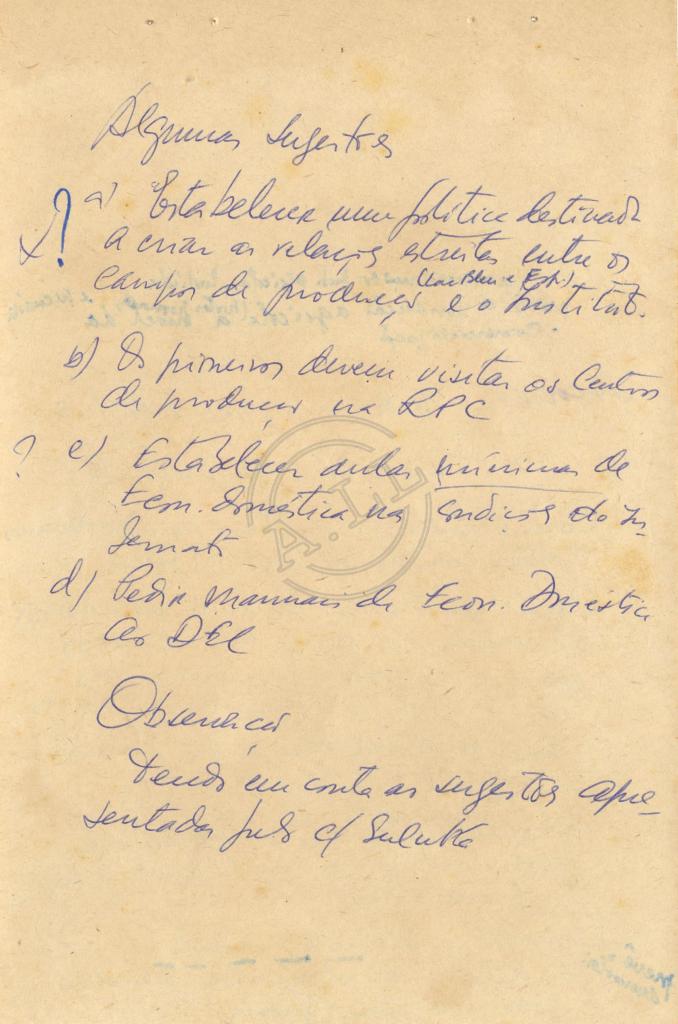 Algumas sugestões
? a) Estabelecer uma política destinada
x a criar as relações estreitas entre os
campos de produção e o Institut.
b) Os primeiros devem visitar os Centros
de produção na RPC
? c) Estabelecer aulas mínimas de
Econ. doméstica nas do In-
ternato
d) Pedir manuais de Econ. Doméstica
ao DEC
Observação
Tendo em conta as sugestões apre-
sentadas pelo c/
A.T.D.